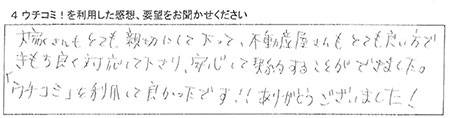 4 ウチコミ！を利用した感想、要望をお聞かせください
大家さんもとても親切にして下さって、不動産屋さんもとても良い方で
きもち良く対応して下さり、安心して契約することができました。
「ウチコミ」を利用して良かったです!! ありがとうございました！